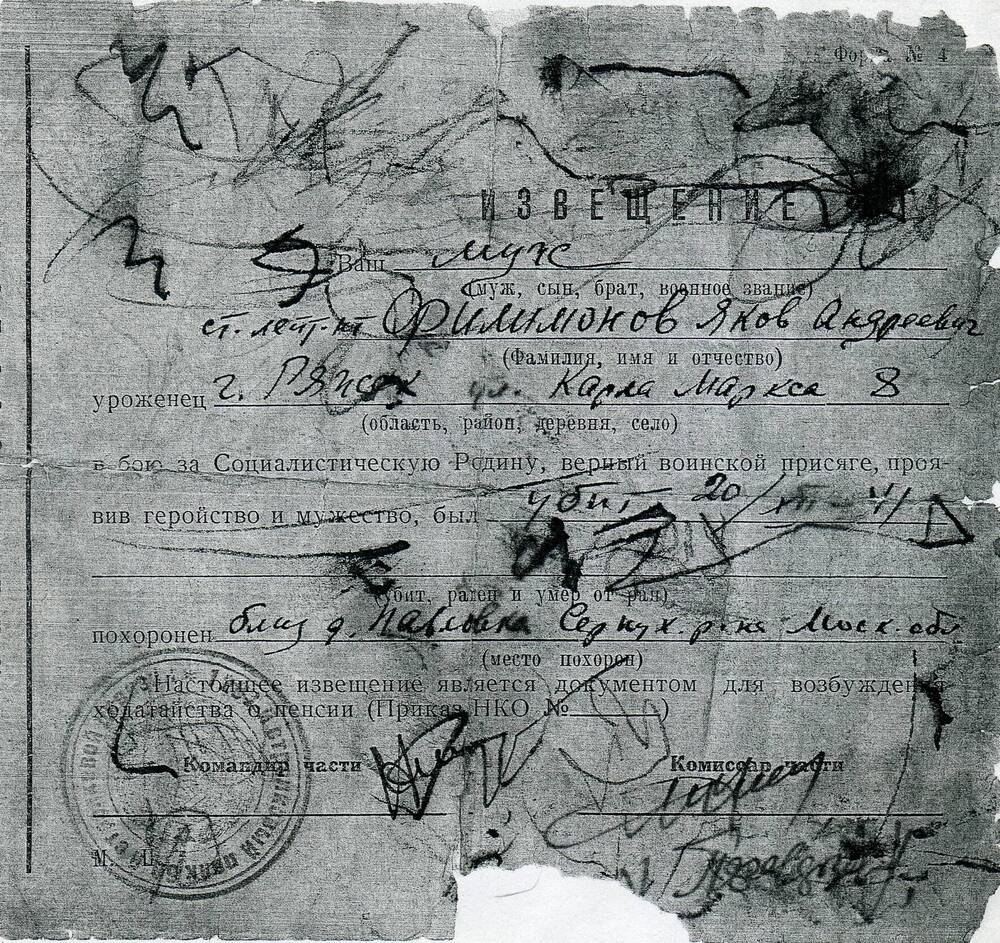 Форма № 4
ИЗВЕЩЕНИЕ
Ваш муж
(муж, сын, брат, военное звание)
ст. лейт-нт Филимонов Яков Андреевич
(Фамилия, имя и отчество)
уроженец г. Ряжск ул. Карла Маркса 8
(область, район, деревня, село)
в бою за Социалистическую Родину, верный воинской присяге, проя-
вив геройство и мужество, был убит 20/XII-41
(убит, ранен и умер от ран)
похоронен близ д. Павловка Серпух. р-на Моск. обл.
(место похорон)
Настоящее извещение является документом для возбуждения
ходатайства о пенсии (Приказ НКО №     )
Командир части Комиссар части
М. П.